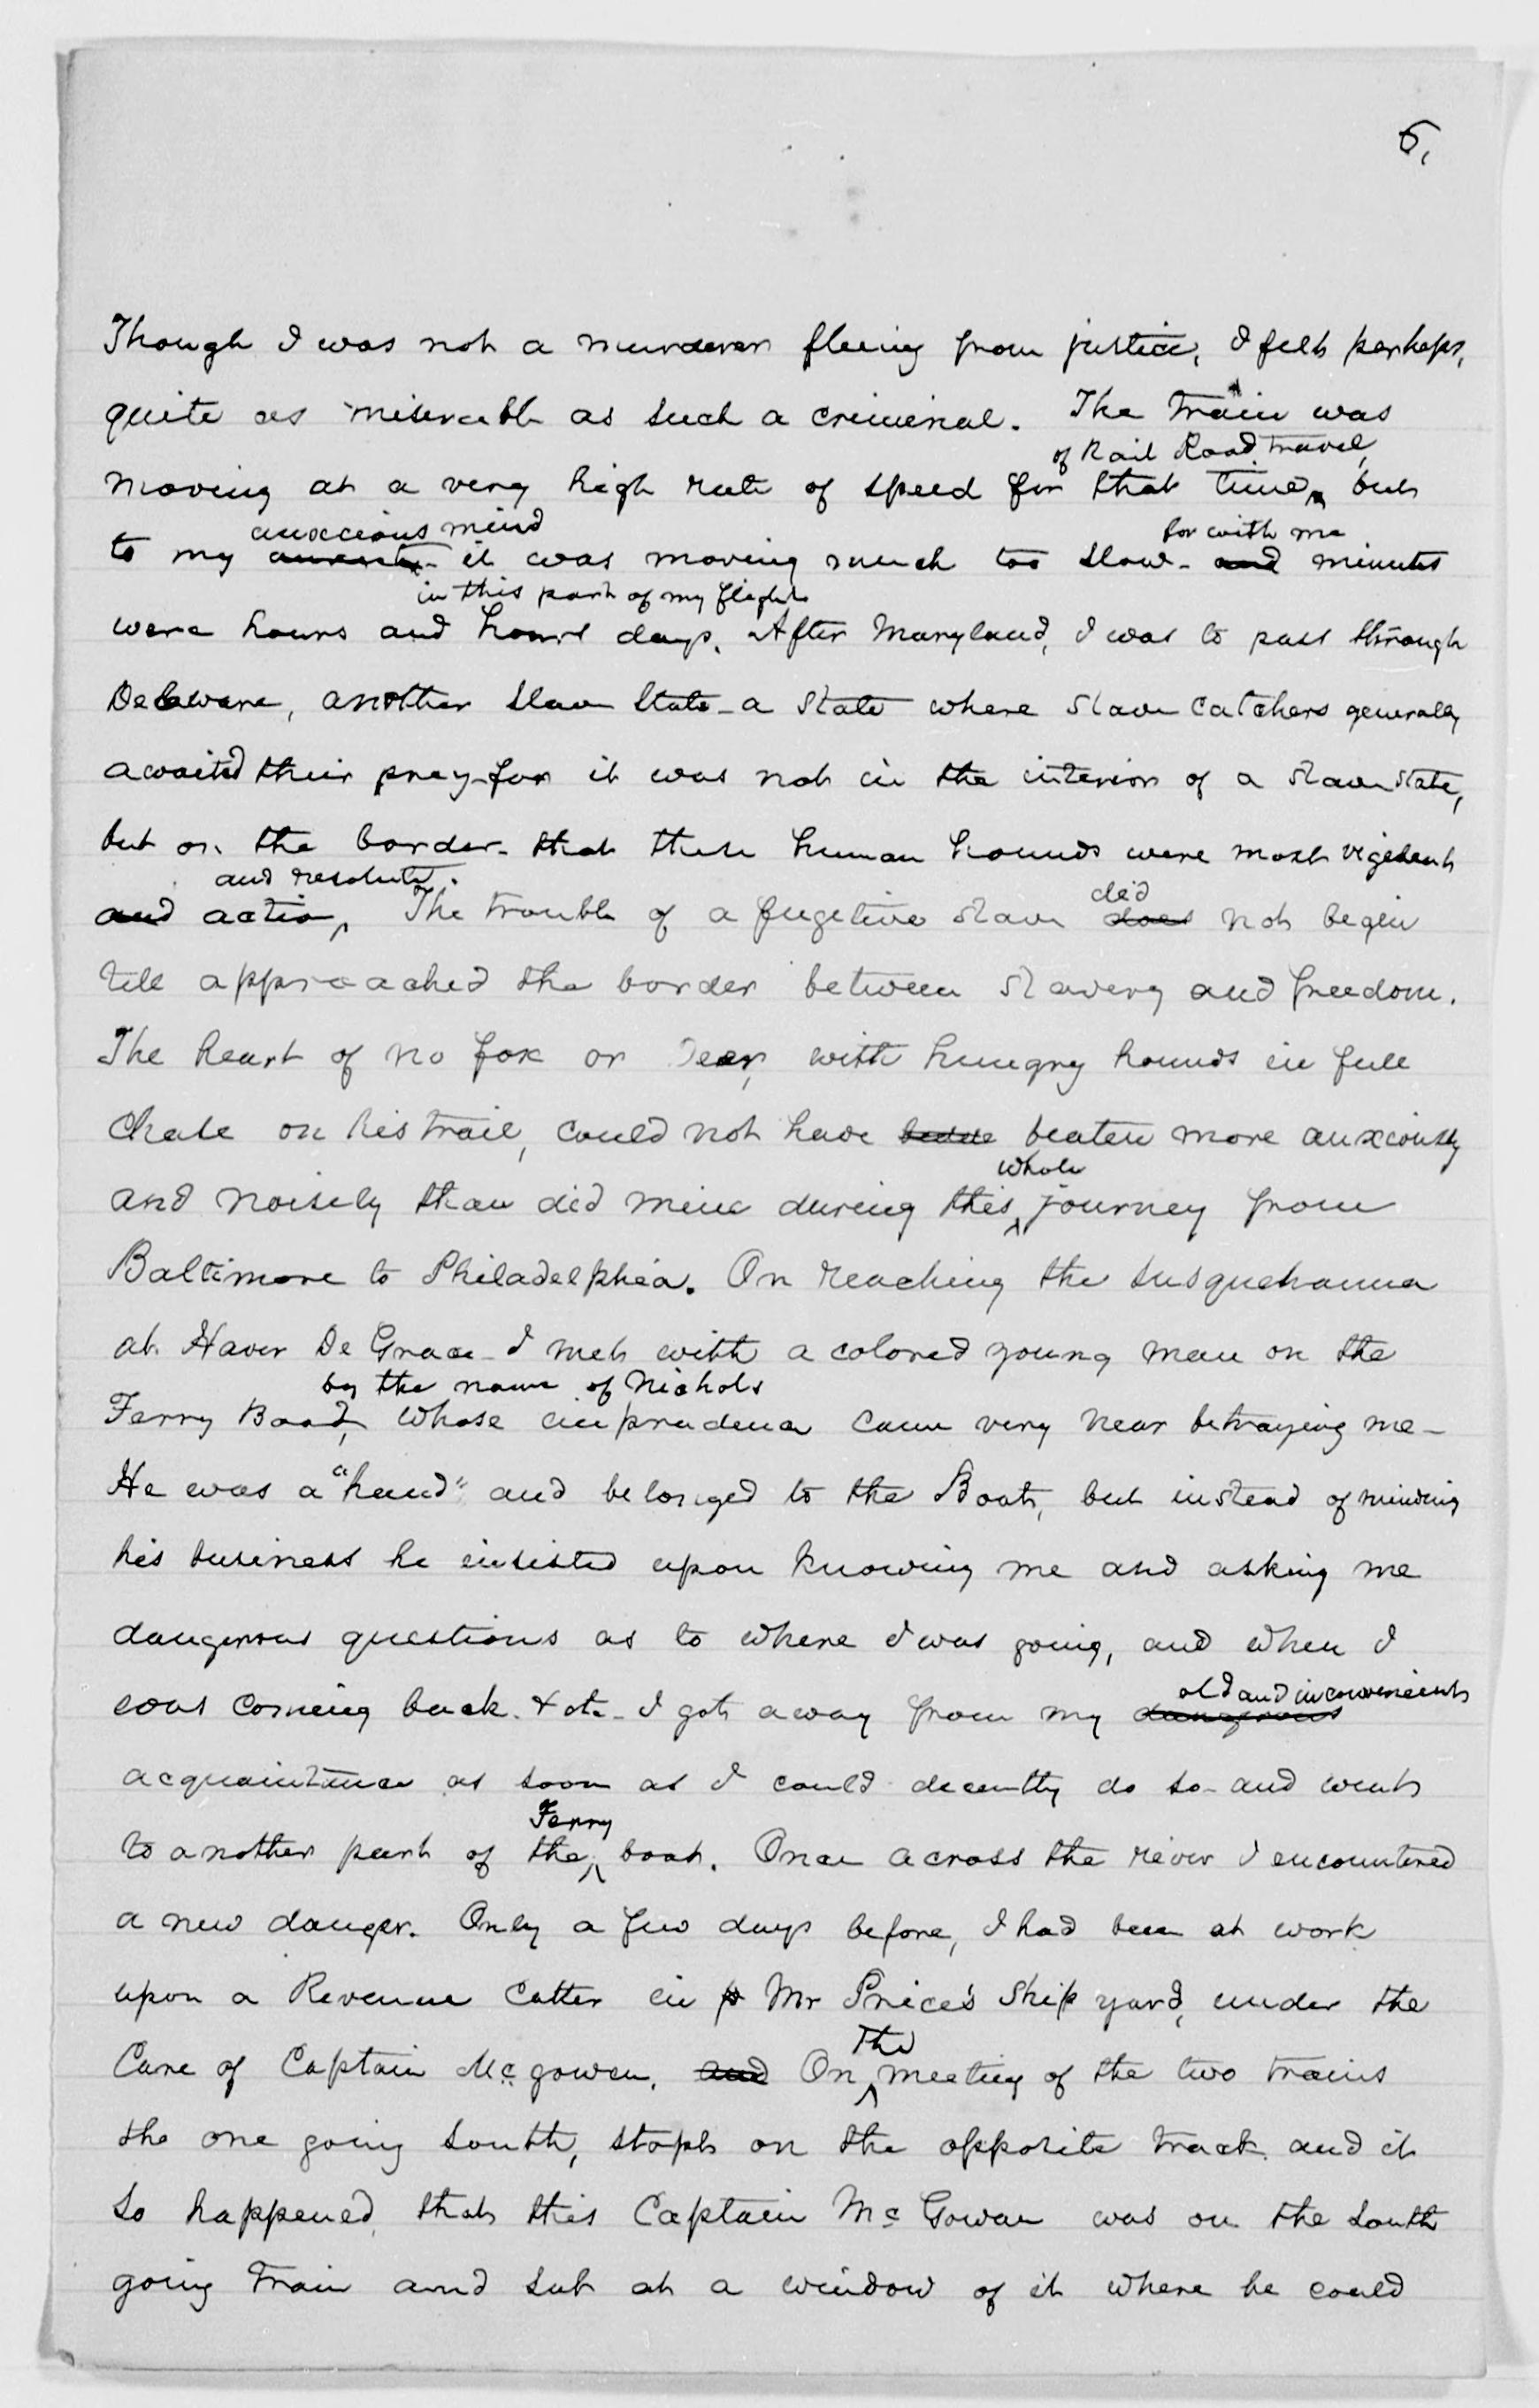 6,
Though I was not a murderer fleeing from justice, I felt perhaps,
quite as miserable as such a criminal. The train was
of Rail Road travel,
moving at a very high rate of speed for that time, but
anxcious mind for with me
to my it was moving much too slow - and minutes
in this part of my flight
were hours and hours days. After Maryland, I was to pass through
Delaware, another slave State - a State where slave catchers generally
awaited their prey - for it was not in the interior of a slave state,
but on the border - that these human hounds were most vigelent
and resolute.
and active, The trouble of a fugitive slave
did
does not begin
till approached the border between slavery and freedom.
The heart of no fox or Deer, with hungry hounds in full
chase on his trail, could not have beaten more anxciously
whole
and noisely than did mine during this journey from
Baltimore to Philadelphia. On reaching the Susquehanna
at Haver De Grace - I met with a colored young man on the
by the name of Nichols
Ferry Boat, whose imprudence came very near betraying me -
He was a "hand" and belonged to the Boat, but instead of minding
his business he insisted upon knowing me and asking me
dangerous questions as to where I was going, and when I
old and inconvenient
was coming back. + etc - I got away from my dangerous
acquaintance as soon as I could decently do so - and went
Ferry
to another part of the boat. Once across the river I encountered
a new danger. Only a few days before, I had been at work
upon a Revenue Cutter in Mr Price's Ship yard, under the
The
Care of Captain Mc gowen. and On meeting of the two trains
the one going South, stopt on the opposite track and it
so happened, that this Captain Mc Gowan was on the south
going train and sat at a window of it where he could